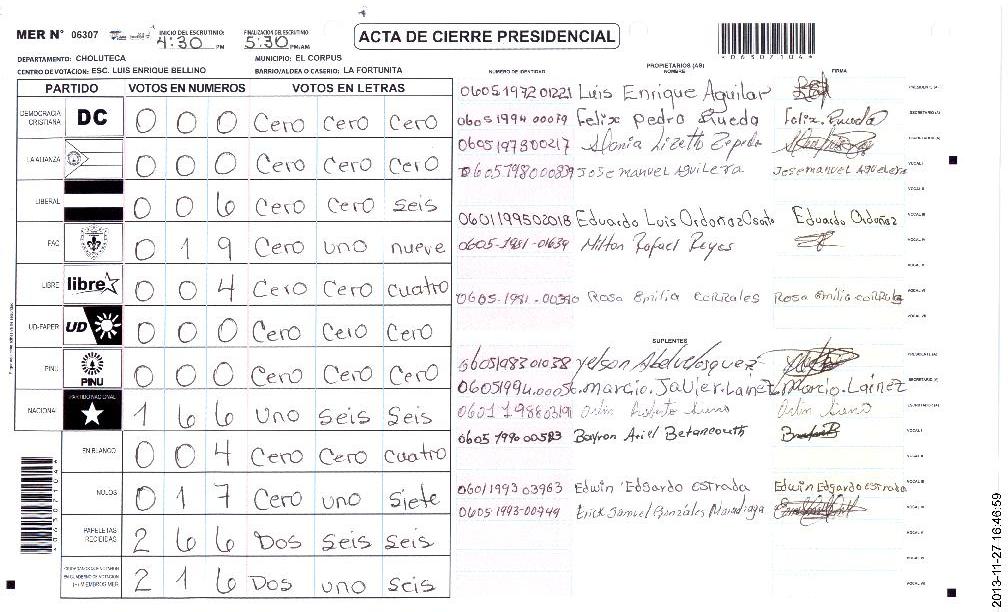 MER N° 06307 INICIO DEL ESCRUTINIO: 4:30 PM FINALIZACION DEL ESCRUTINIO 5:30 PM/AM
ACTA DE CIERRE PRESIDENCIAL
06307104
DEPARTAMENTO: CHOLUTECA MUNICIPIO: EL CORPUS
CENTRO DE VOTACION: ESC. LUIS ENRIQUE BELLINO BARRIO/ALDEA O CASERIO: LA FORTUNITA
PARTIDO VOTOS EN NUMEROS VOTOS EN LETRAS
DEMOCRACIA CRISTIANA DC 0 0 0 Cero Cero Cero
LA ALIANZA 0 0 0 Cero Cero Cero
LIBERAL 0 0 6 Cero Cero seis
PAC 0 1 9 Cero uno nueve
LIBRE libre 0 0 4 Cero Cero cuatro
UD-FAPER UD 0 0 0 Cero Cero Cero
PINU PINU 0 0 0 Cero Cero Cero
NACIONAL PARTIDO NACIONAL 1 6 6 Uno Seis Seis
EN BLANCO 0 0 4 Cero Cero cuatro
NULOS 0 1 7 Cero uno siete
PAPELETAS RECIBIDAS 2 6 6 Dos seis seis
2 1 6 Dos uno seis
PROPIETARIOS (AS)
NUMERO DE IDENTIDAD NOMBRE FIRMA
0605197201221 Luis Enrique Aguilar PRESIDENTE (A)
06051994 00079 Felix Pedro Rueda Felix. Rueda SECRETARIO (A)
0605197800217 Lizeth Zepeda ESCRUTADOR (A)
0605198000839 Jose manuel Aguilera Jose manuel Aguilera VOCAL I
VOCAL II
0601199502018 Eduardo Luis Ordoñez Eduardo Ordoñez VOCAL III
0605-1981-01639 Milton Rafael Reyes VOCAL IV
VOCAL V
0605-1981-00390 Rosa Emilia corrales Rosa Emilia corrales VOCAL VI
VOCAL VII
SUPLENTES
0605198301038 Yelson PRESIDENTE (A)
06051994.00056 marcio.Javier.Lainez Marcio.Láinez SECRETARIO (A)
Roberto ESCRUTADOR (A)
0605 1990 00583 Bayron Ariel Betancourth VOCAL I
VOCAL II
0601199303963 Edwin Edgardo estrada Edwin Edgardo estrada VOCAL III
0605-1993-00949 Erick Samuel Gonzales VOCAL IV
VOCAL V
VOCAL VI
VOCAL VII
2013-11-27 16:46:59